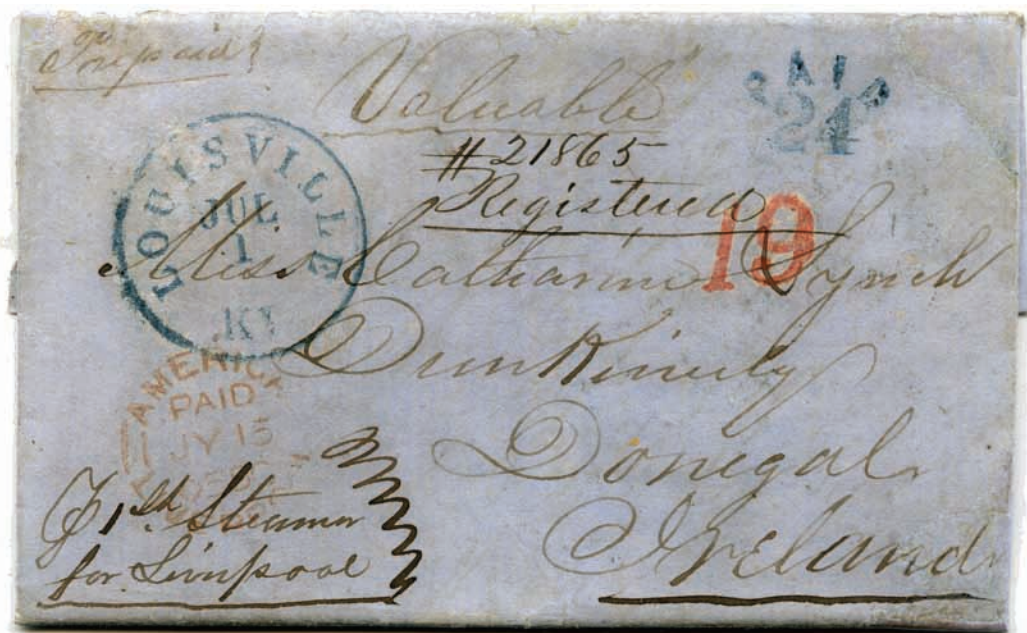 Prepaid
"Valuable"
PAID
24
# 21865
Registered
LOUISVILLE
JUL
1
KY
19
Miss Catharine Lynch
DunKinely
Donegal
Ireland
AMERICA
PAID
JY 15
1st Steamer
for Liverpool